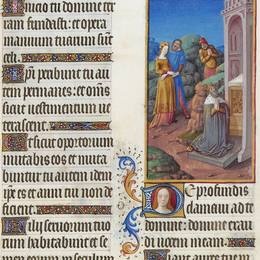 Inicio tu domine ter
ram fundasti: et opera
manuum tuarum sunt
celi.
Ipsi peribunt tu au
tem permanes: et oms
sicut vestimentum ve
terascent.
Et sicut opertorium
mutabis eos et muta
buntur tu autem idem
ipse es et anni tui non de
ficient.
Filij servorum tuo
rum habitabunt et se
men eorum in seculum
De profundis
clamavi ad te
domine: domine exau
di vocem meam.
Fiant aures tue